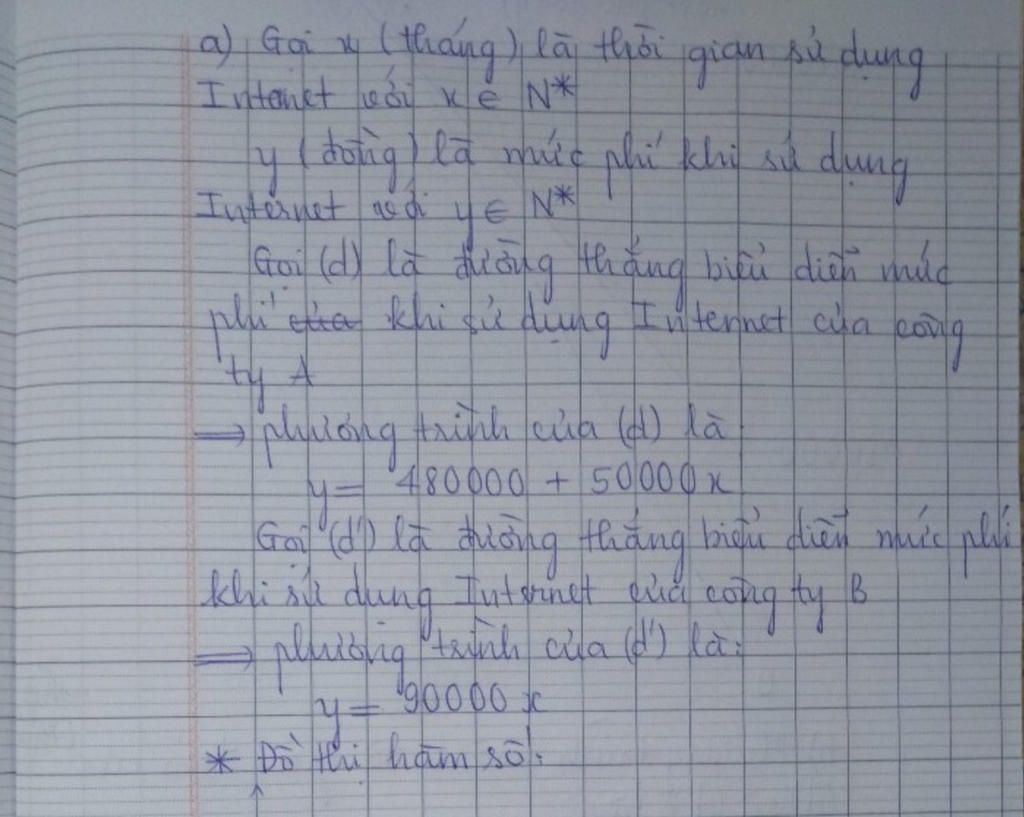 a) Gọi x (tháng) là thời gian sử dụng
Internet với x ∈ N*
y (đồng) là mức phí khi sử dụng
Internet với y ∈ N*
Gọi (d) là đường thẳng biểu diễn mức
phí của khi sử dụng Internet của công
ty A
⟹ phương trình của (d) là
y = 480000 + 50000x
Gọi (d') là đường thẳng biểu diễn mức phí
khi sử dụng Internet của công ty B
⟹ phương trình của (d') là:
y = 90000x
* Đồ thị hàm số: